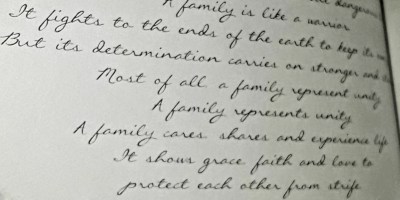 dangerous
A family is like a warrior
It fights to the ends of the earth to keep its
But its determination carries on stronger and
Most of all a family represent unity
A family represents unity
A family cares shares and experience life
It shows grace faith and love to
protect each other from strife